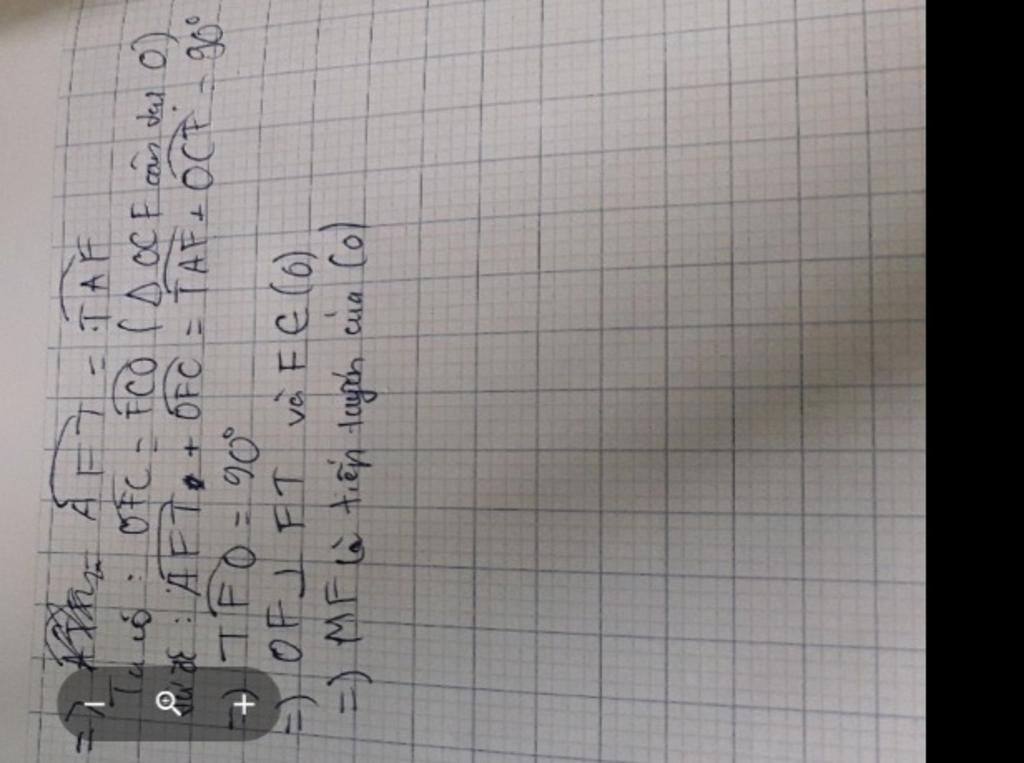 =) AFT = TAF
Ta có : OFC = FCO (Δ OCF cân tại O)
: AFT + OFC = TAF + OCF = 90°
=) TFO = 90°
=) OF ⊥ FT và F ∈ (O)
=) MF là tiếp tuyến của (O)